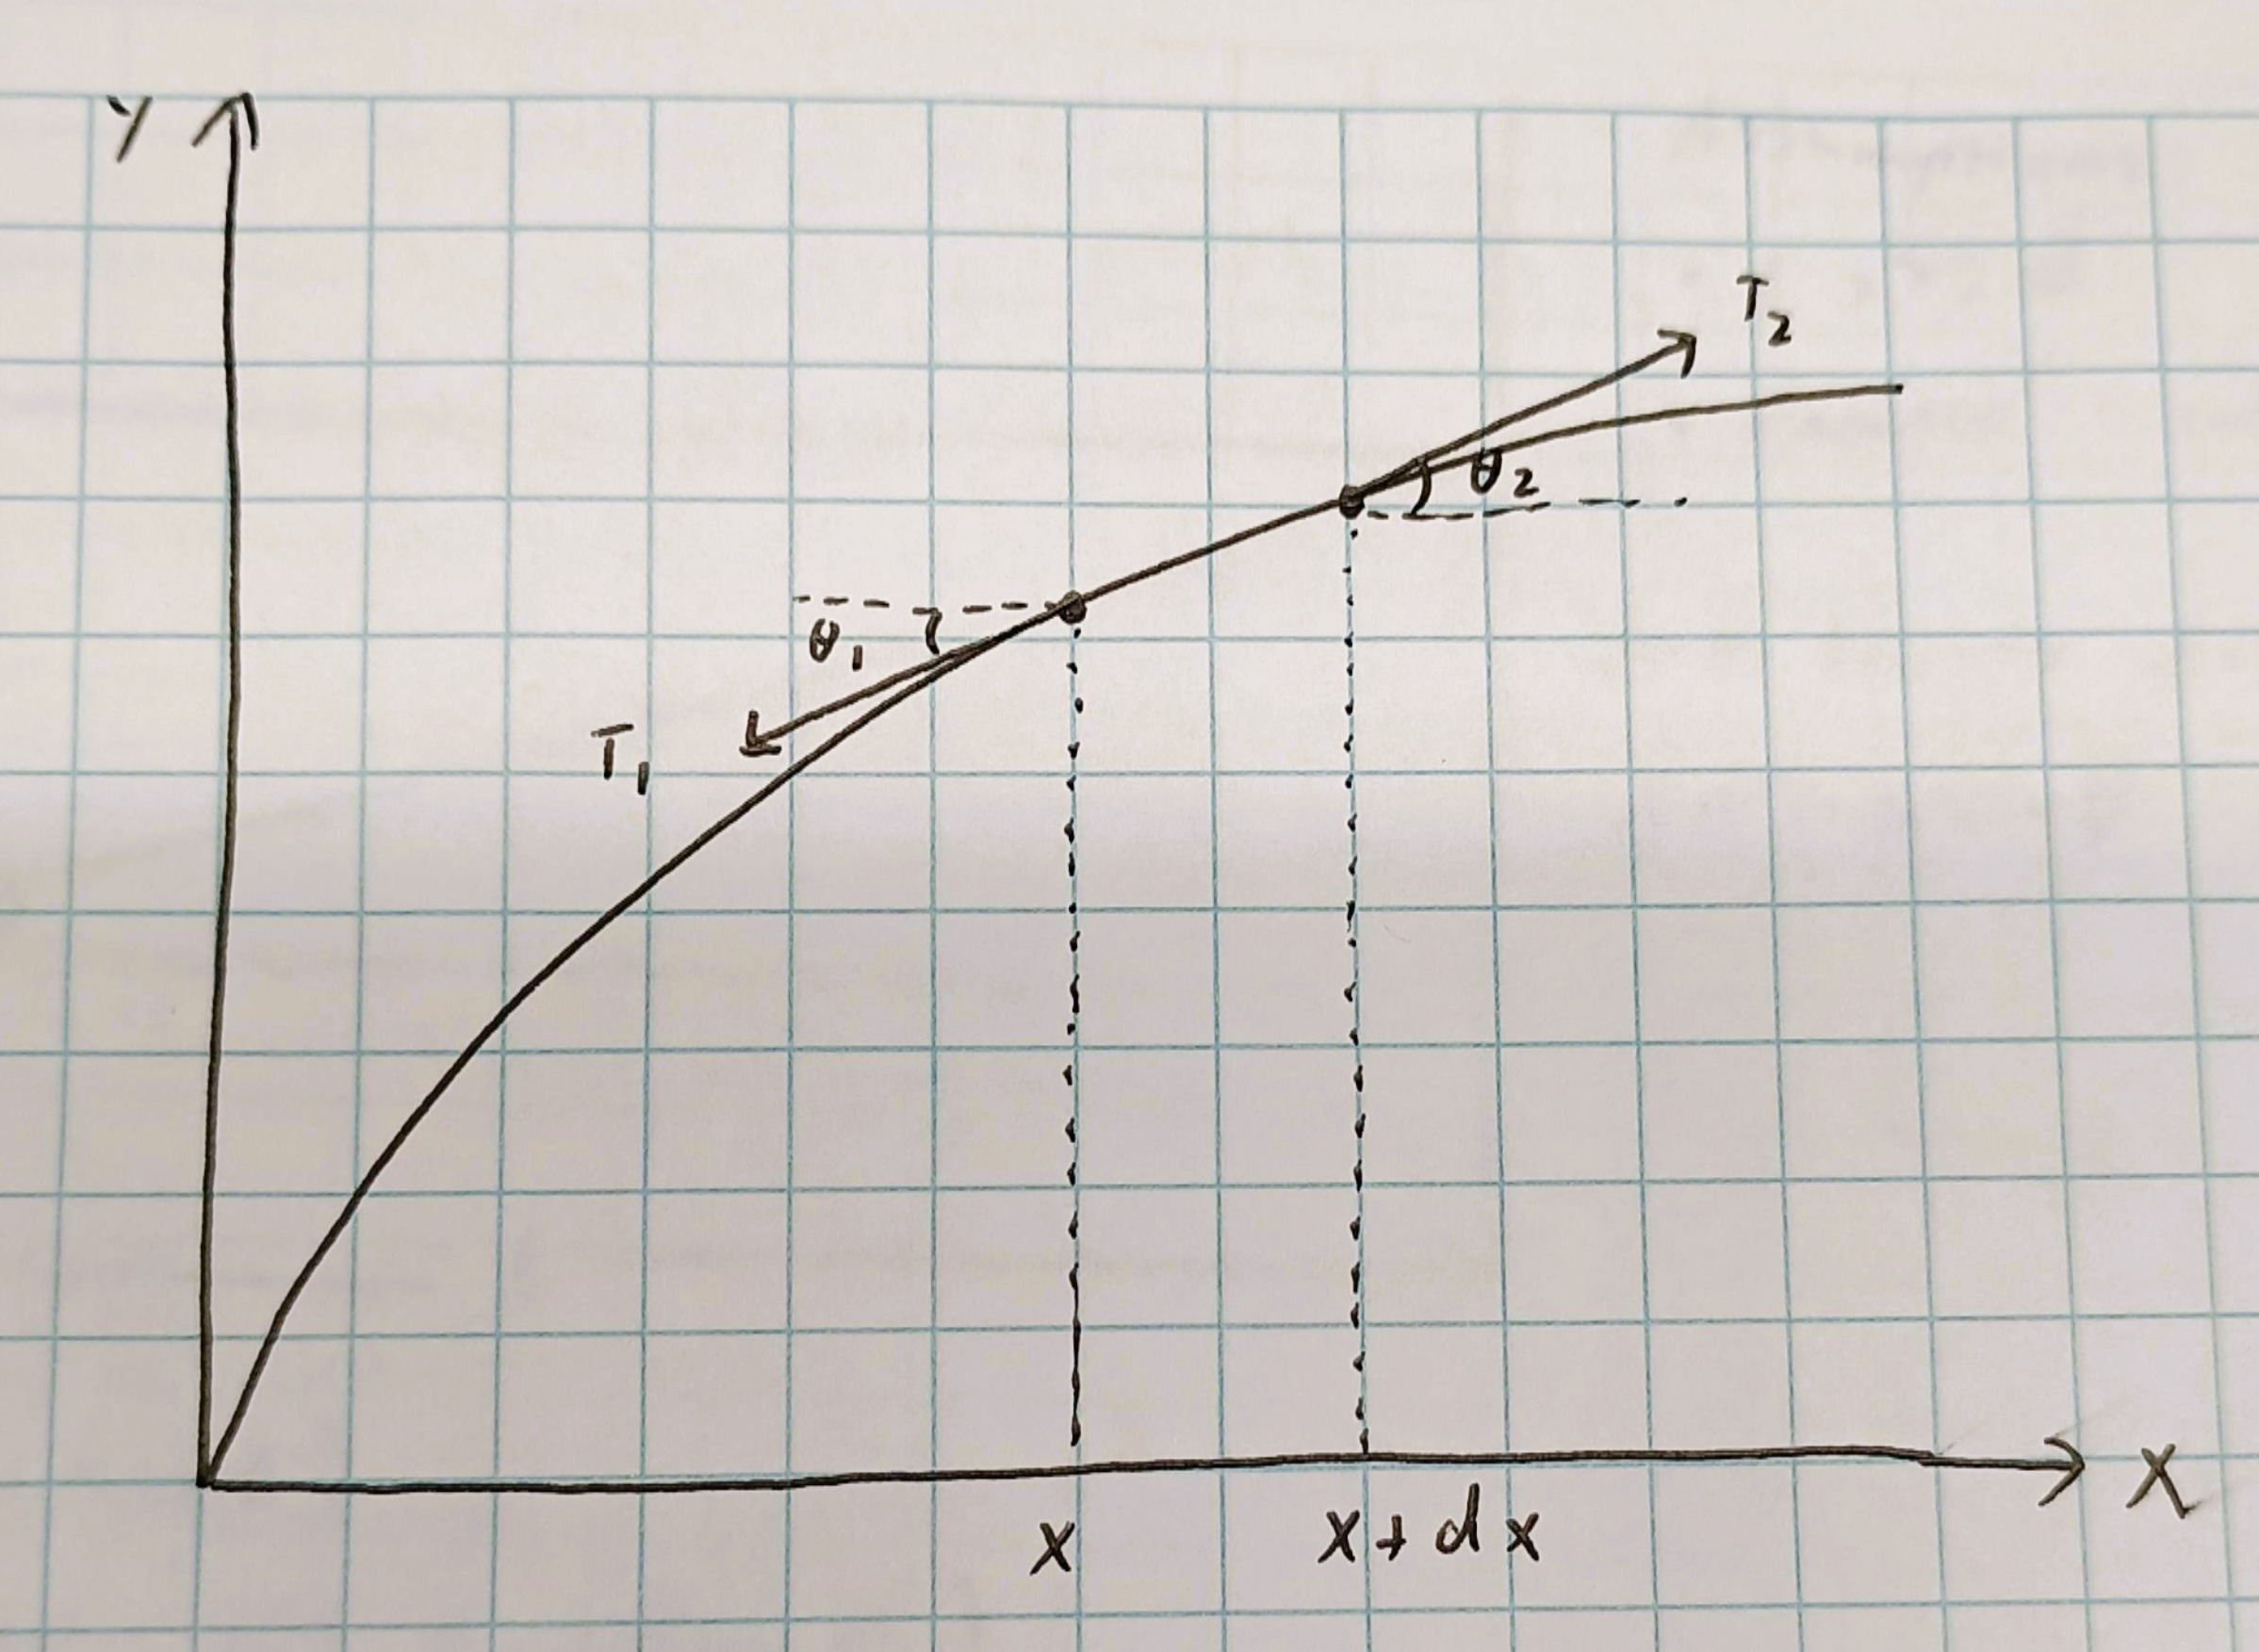 Y
T₂
θ₂
θ₁
T₁
X
x
x + dx